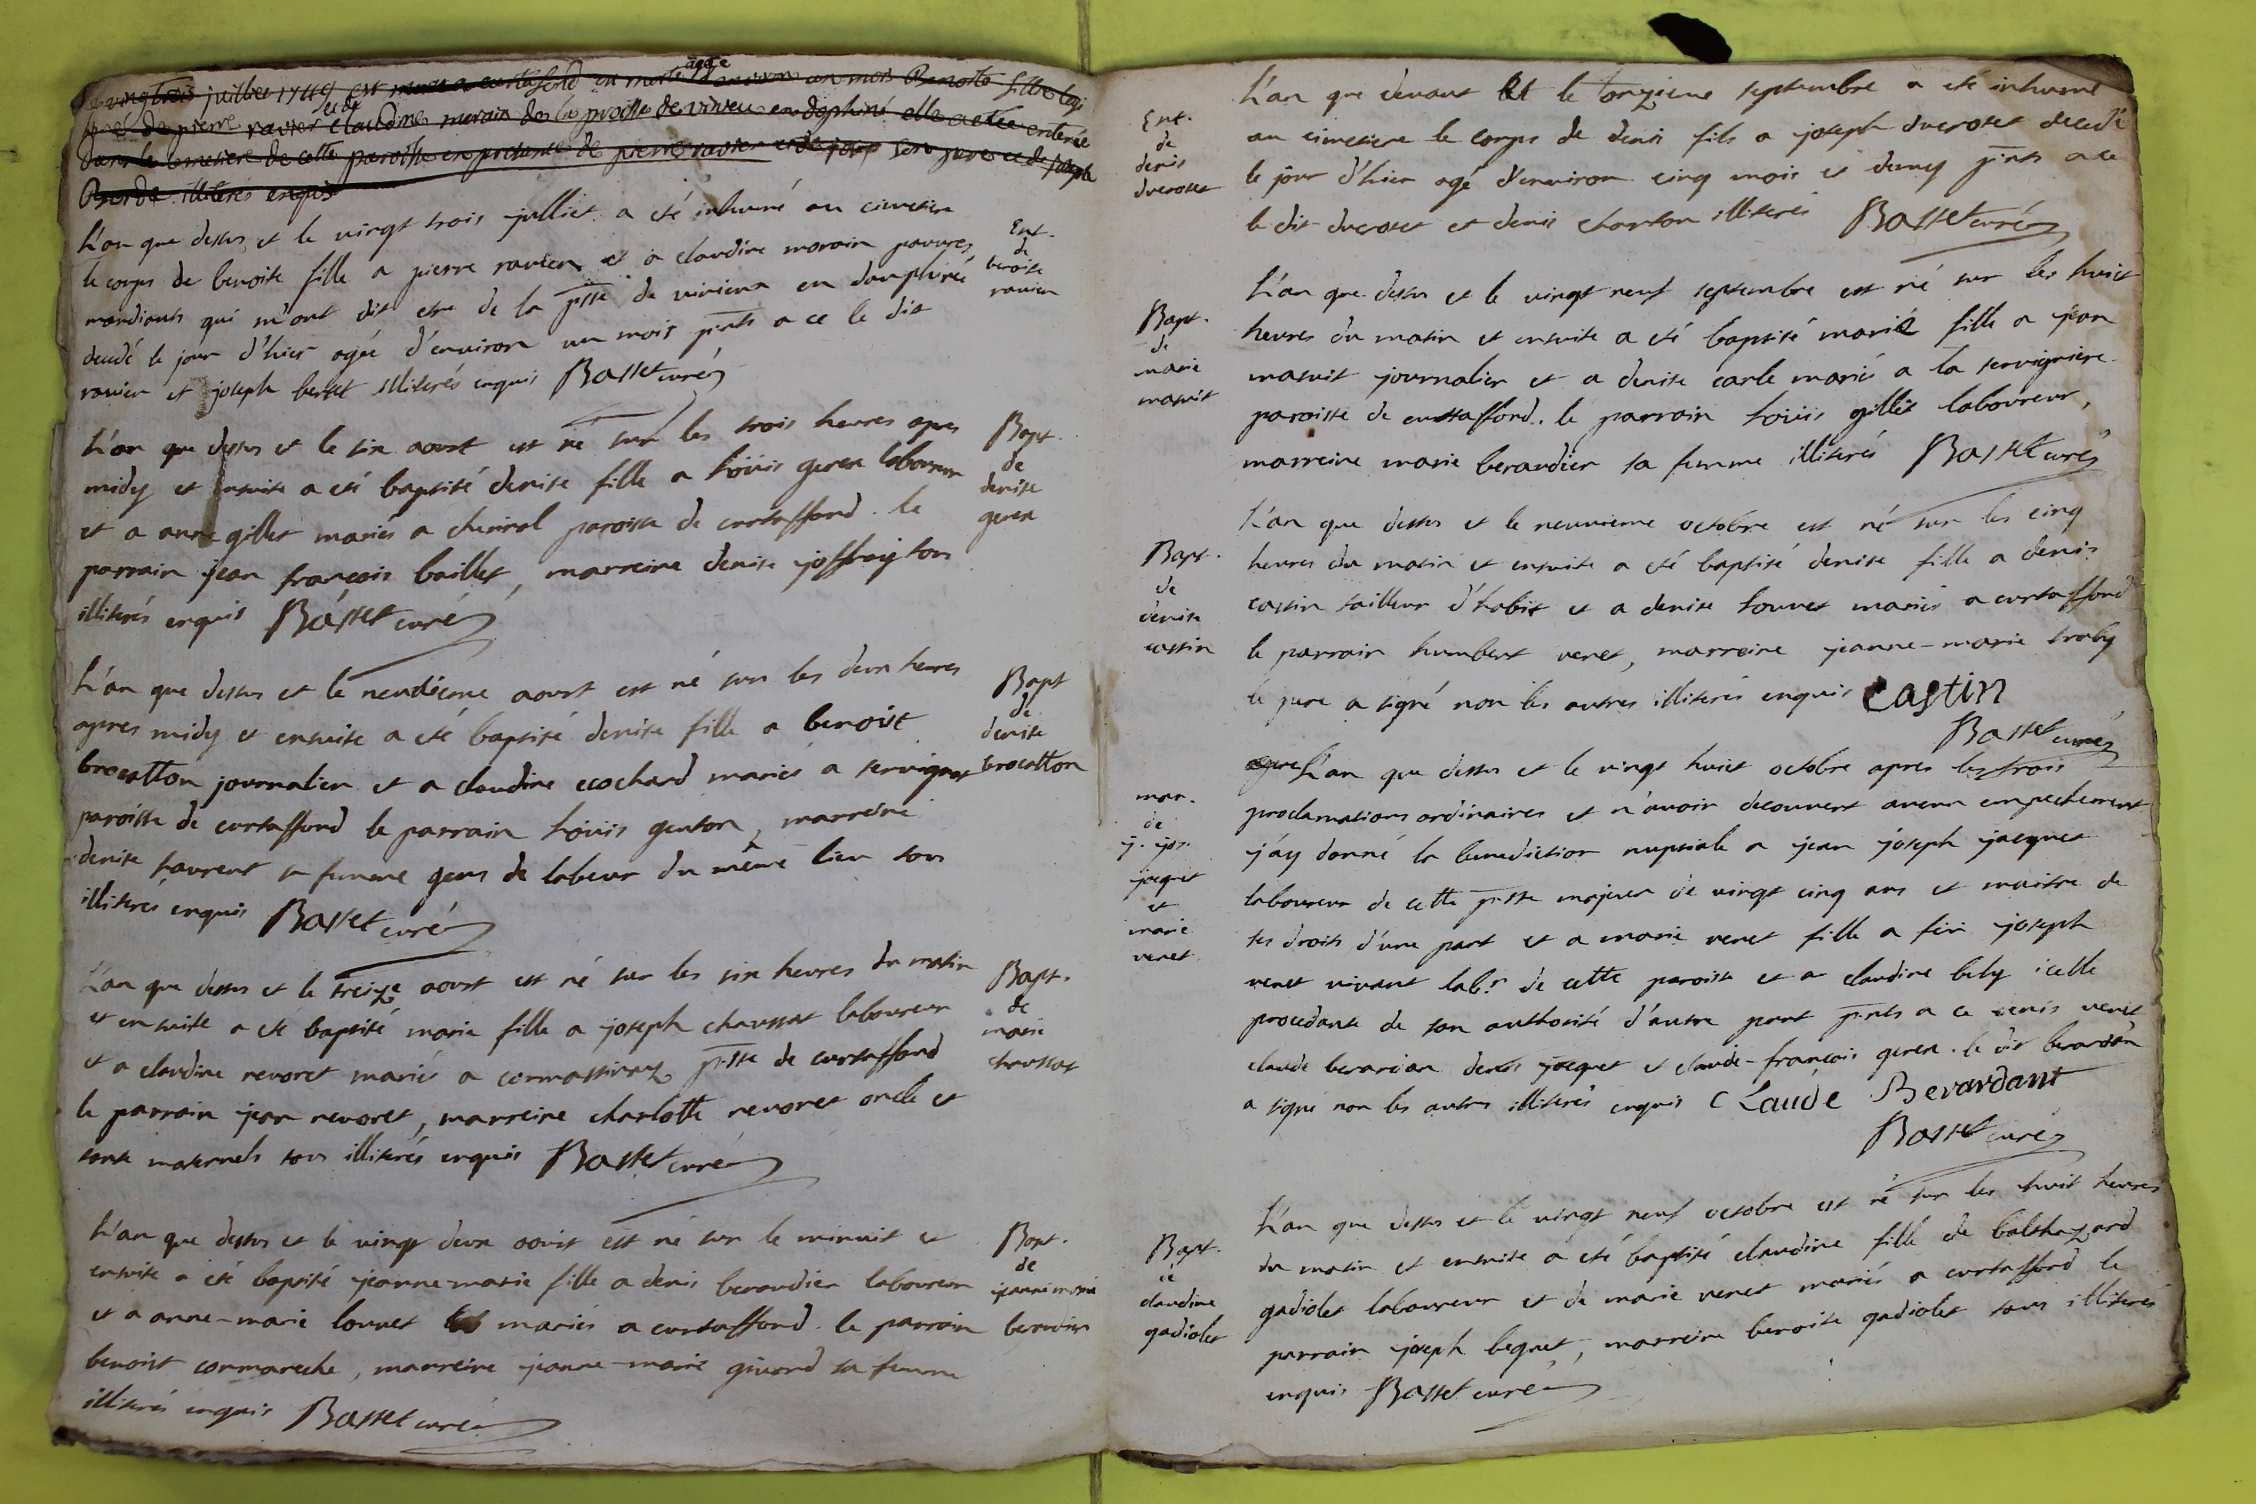 juillet 1749 est en mois Benoite fille
agée
de pierre ravier et de Claudine morain de la proisse de vivieu en dophiné elle a etee enterée
dans le cimetiere de cette paroisse en presence de pierre ravier son pere et de joseph
illiterés enquis
L'an que dessus et le vingt trois julliet a eté inhumé au cimetiere
le corps de benoite fille a pierre ravier et a claudine morain pauvres
mandiants qui m'ont dit etre de la psse de vivieux en dauphiné
decedé le jour d'hier agée d'environ un mois pnts a ce le dit
ravier et joseph illiterés enquis Basset curé
Ent.
de
benoite
ravier
L'an que dessus et le six aoust est né sur les trois heures apres
midy et ensuite a eté baptisé denise fille a loüis gerex laboureur
et a anne gillet mariés a cheviral paroisse de curtaffond. le
parrain jean françois baillet, marreine denise joffray tous
illiterés enquis Basset curé
Bapt.
de
denise
gerex
L'an que dessus et le neuvieme aoust est né sur les deux heures
apres midy et ensuite a eté baptisé denise fille a benoist
brocatton journalier et a claudine ecochard mariés a servignat
paroisse de curtaffond le parrain loüis genton, marreine
denise laurent sa femme gens de labeur du même lieu tous
illiterés enquis Basset curé
Bapt
de
denise
brocatton
L'an que dessus et le treize aoust est né sur les six heures du matin
et ensuite a eté baptisé marie fille a joseph chaussat laboureur
et a claudine revoret mariés a cormassinat psse de curtaffond
le parrain jean revoret, marreine charlotte revoret oncle et
tante maternels tous illiterés enquis Basset curé
Bapt.
de
marie
chaussat
L'an que dessus et le vingt deux aoust est né sur le minuit et
ensuite a eté baptisé jeanne marie fille a denis beraudier laboureur
et a anne-marie louvet mariés a curtaffond. le parrain
benoist cormareche, marreine jeanne-marie givord sa femme
illiterés enquis Basset curé
Bapt.
de
jeanne marie
beraudier
L'an que devant et le onzieme septembre a eté inhumé
au cimetiere le corps de denis fils a joseph ducroset decedé
le jour d'hier agé d'environ cinq mois et demy pnts a ce
le dit ducroset et denis charton illiterés Basset curé
Ent.
de
denis
ducroset
L'an que dessus et le vingt neuf septembre est né sur les huict
heures du matin et ensuite a eté baptisé marie fille a jean
matuit journalier et a denise carle mariés a la servigniere
paroisse de curtaffond. le parrain loüis gillet laboureur,
marreine marie beraudier sa femme illiterés Basset curé
Bapt.
de
marie
matuit
L'an que dessus et le neuvieme octobre est né sur les cinq
heures du matin et ensuite a eté baptisé denise fille a denis
castin tailleur d'habit et a denise louvet mariés a curtaffond
le parrain humbert venet, marreine jeanne-marie
le pere a signé non les autres illiterés enquis castin
Basset curé
Bapt.
de
denise
castin
L'an que dessus et le vingt huict octobre apres les trois
proclamations ordinaires et n'avoir decouvert aucun empechement
j'ay donné la benediction nuptiale a jean joseph jacquet
laboureur de cette psse majeur de vingt cinq ans et maitre de
ses droits d'une part et a marie venet fille a feu joseph
venet vivant labr. de cette paroisse et a claudine bely icelle
procedante de son authorité d'autre part pnts a ce denis venet
claude berardan denis jacquet et claude-françois gerex. le dit berardan
a signé non les autres illiterés enquis Claude Berardant
Basset curé
mar.
de
j. jos.
jacquet
et
marie
venet
L'an que dessus et le vingt neuf octobre est né sur les huit heures
du matin et ensuite a eté baptisé claudine fille de balthazard
gadiolet laboureur et de marie venet mariés a curtaffond le
parrain joseph bequet, marreine benoite gadiolet tous illiterés
enquis Basset curé
Bapt.
de
claudine
gadiolet